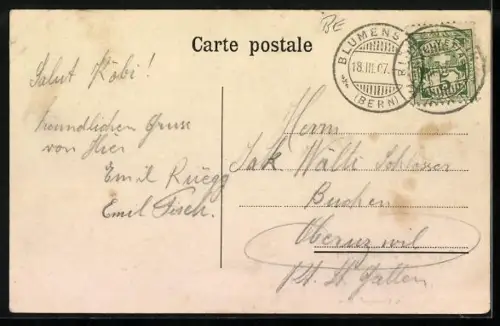 BE
Carte postale
BLUMENS
18.III.07.
(BERN)
Salut Köbi!
Freundlichen Gruss
von Hier
Emil Rüegg
Emil Fisch.
Herrn
Jak Wälti Schlosser
Buchen
Oberuzwil
Kt. St. Gallen